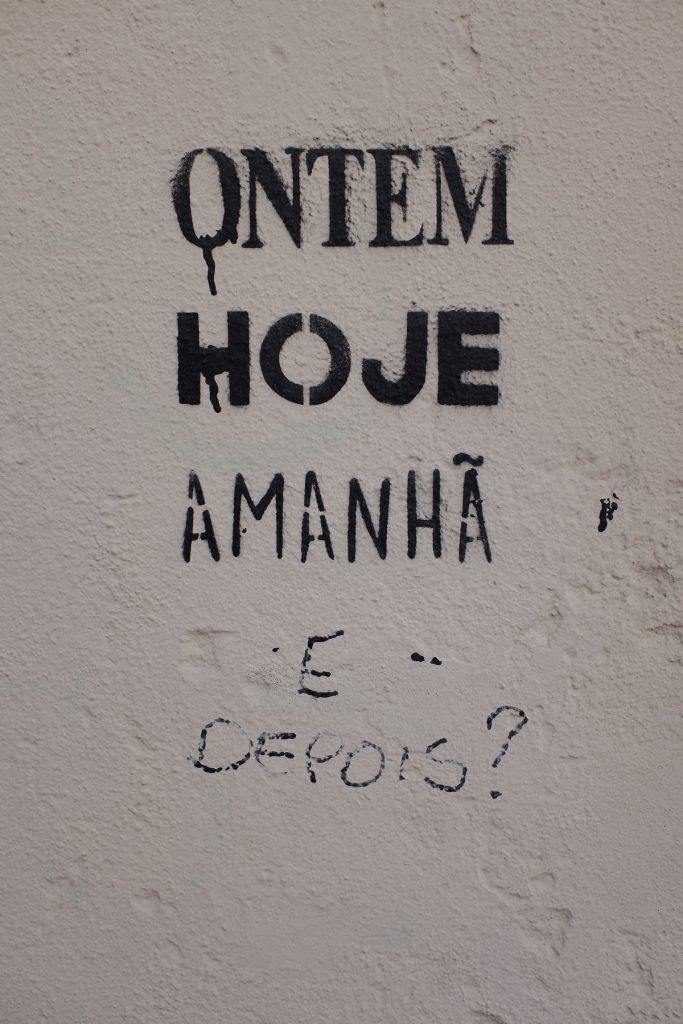 ONTEM
HOJE
AMANHÃ
E
DEPOIS?